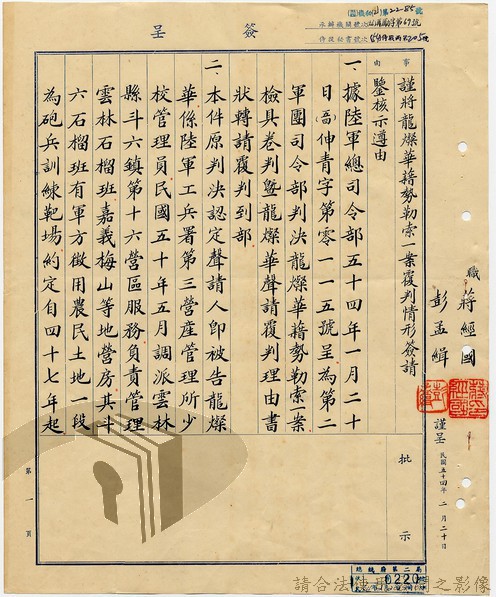 簽呈
事由
謹將龍燦華藉勢勒索一案覆判情形簽請
鑒核示遵由
一、據陸軍總司令部五十四年一月二十
日 伸青字第零一一五號呈為第二
軍團司令部判決龍燦華藉勢勒索一案
檢具卷判暨龍燦華聲請覆判理由書
狀轉請覆判到部
二、本件原判決認定聲請人即被告龍燦
華係陸軍工兵署第三營產管理所少
校管理員民國五十年五月調派雲林
縣斗六鎮第十六營區服務負責管理
雲林石榴班嘉義梅山等地營房其斗
六石榴班有軍方徵用農民土地一段
為砲兵訓練靶場約定自四十七年起
職 蔣經國
彭孟緝
謹呈
民國五十四年二月二十日
批示
第一頁
總統府第二局
0220
請合法使用 之影像